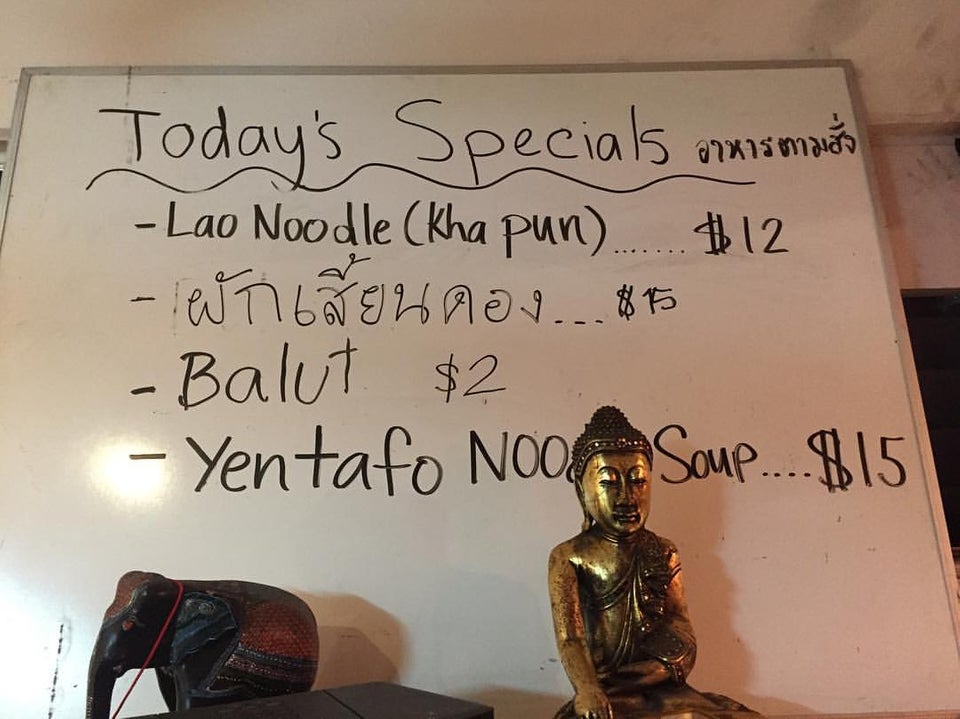 Today's Specials อาหารตามสั่ง
- Lao Noodle (Kha pun)....... $12
- ผักเสี้ยนดอง... $15
- Balut $2
- Yentafo Soup....$15